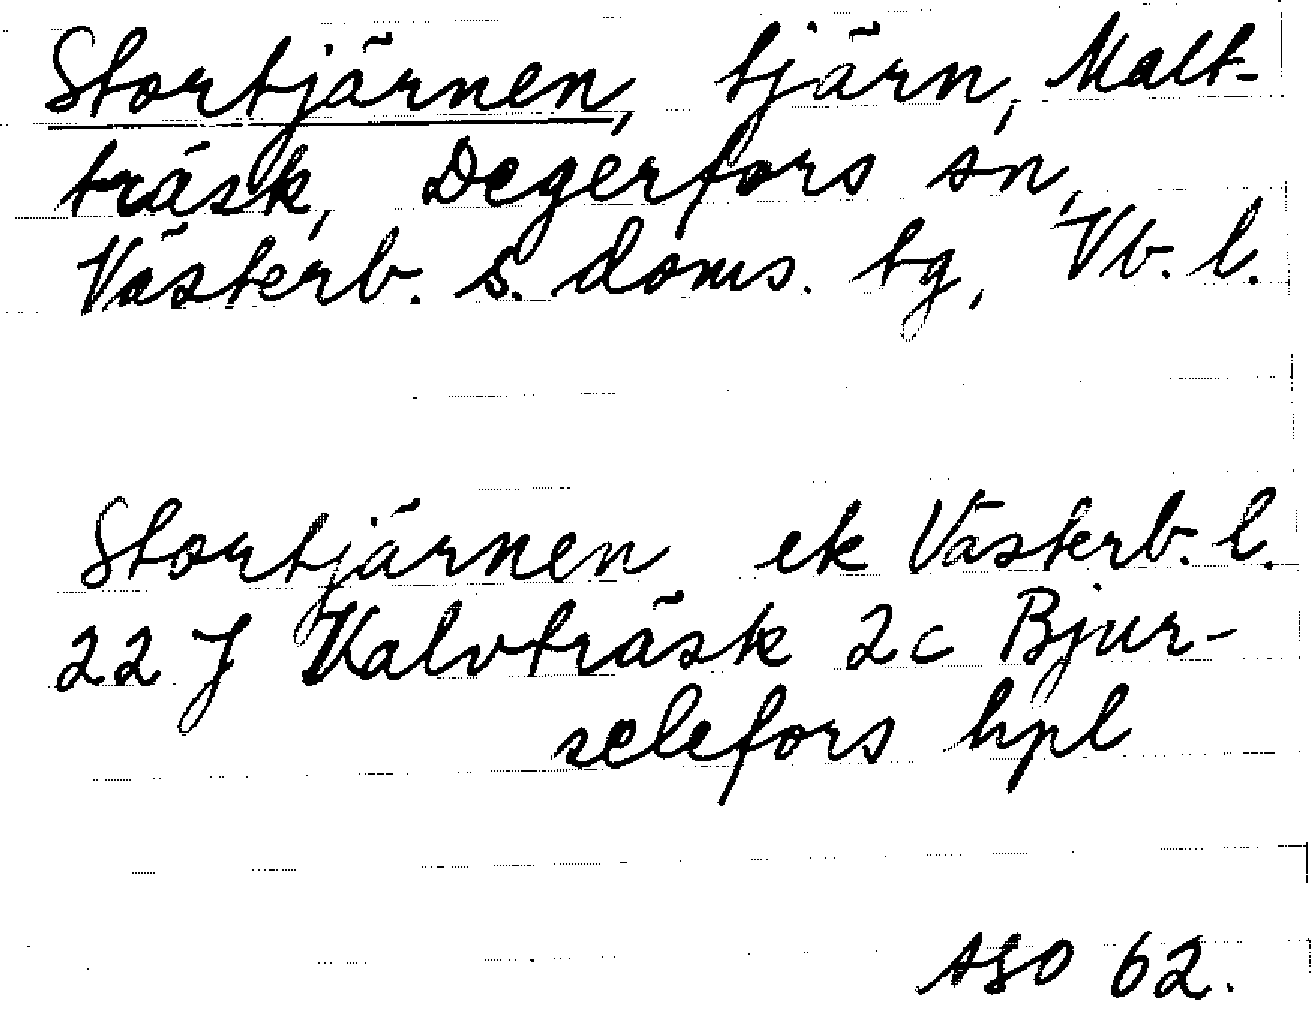 Stortjärnen, tjärn, Malt-
träsk, Degerfors sn,
Västerb. s. doms. tg, Vb. l.
Stortjärnen ek Västerb. l.
22 J Kalvträsk 2c Bjur-
selefors hpl
ASO 62.